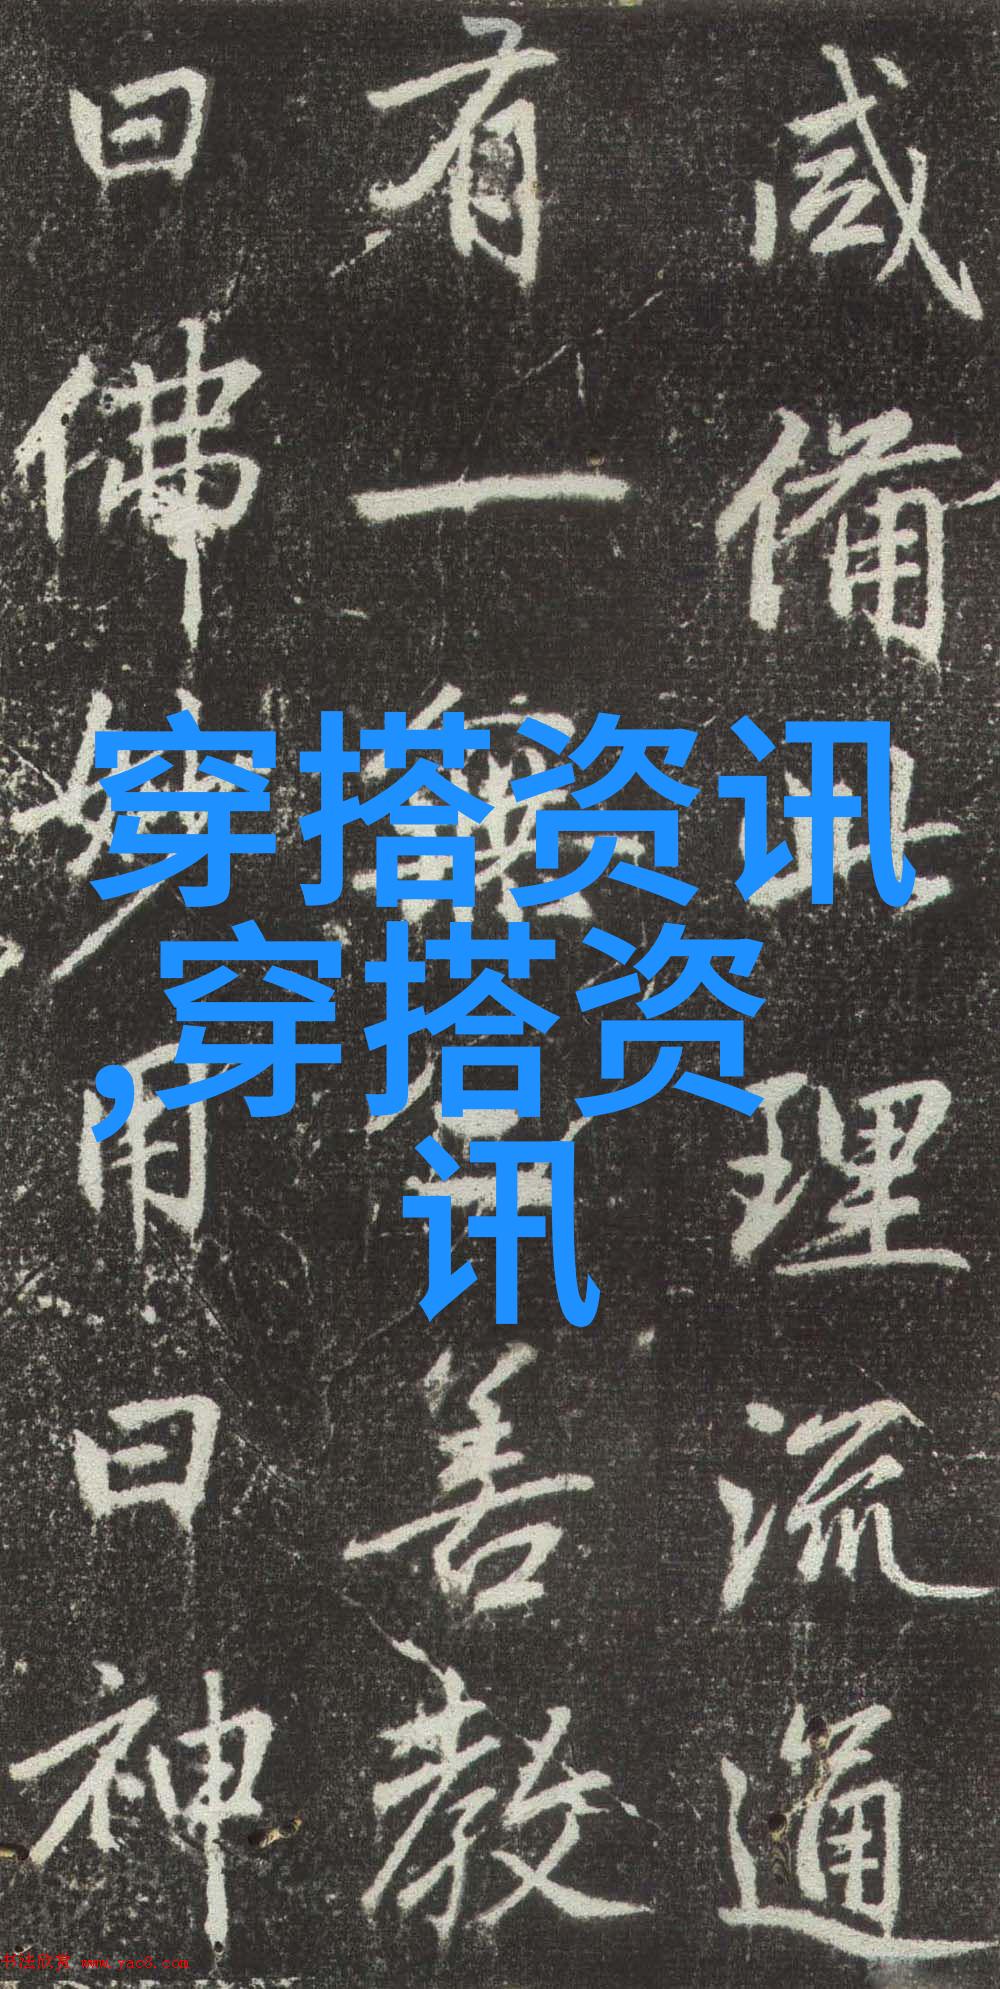 咸備理流通
有一無善教
曰佛妙用曰神
穿搭资讯
,穿搭资
讯
书法欣赏 www.yac8.com